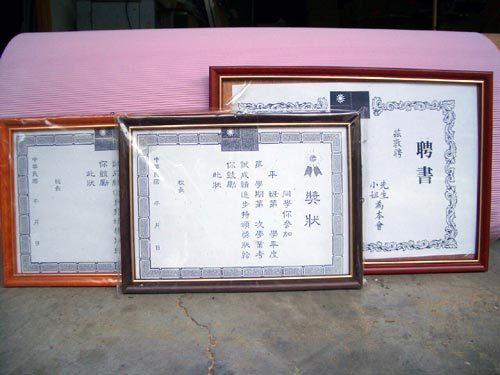 中華民國 年 月 日
校長
此狀
你鼓勵
獎狀
同學你參加
年 班第 學年度
第 學期第 次學業考
試成績進步特頒獎狀給
你鼓勵
此狀
校長
中華民國 年 月 日
聘書
茲敬聘
先生
小姐 為本會